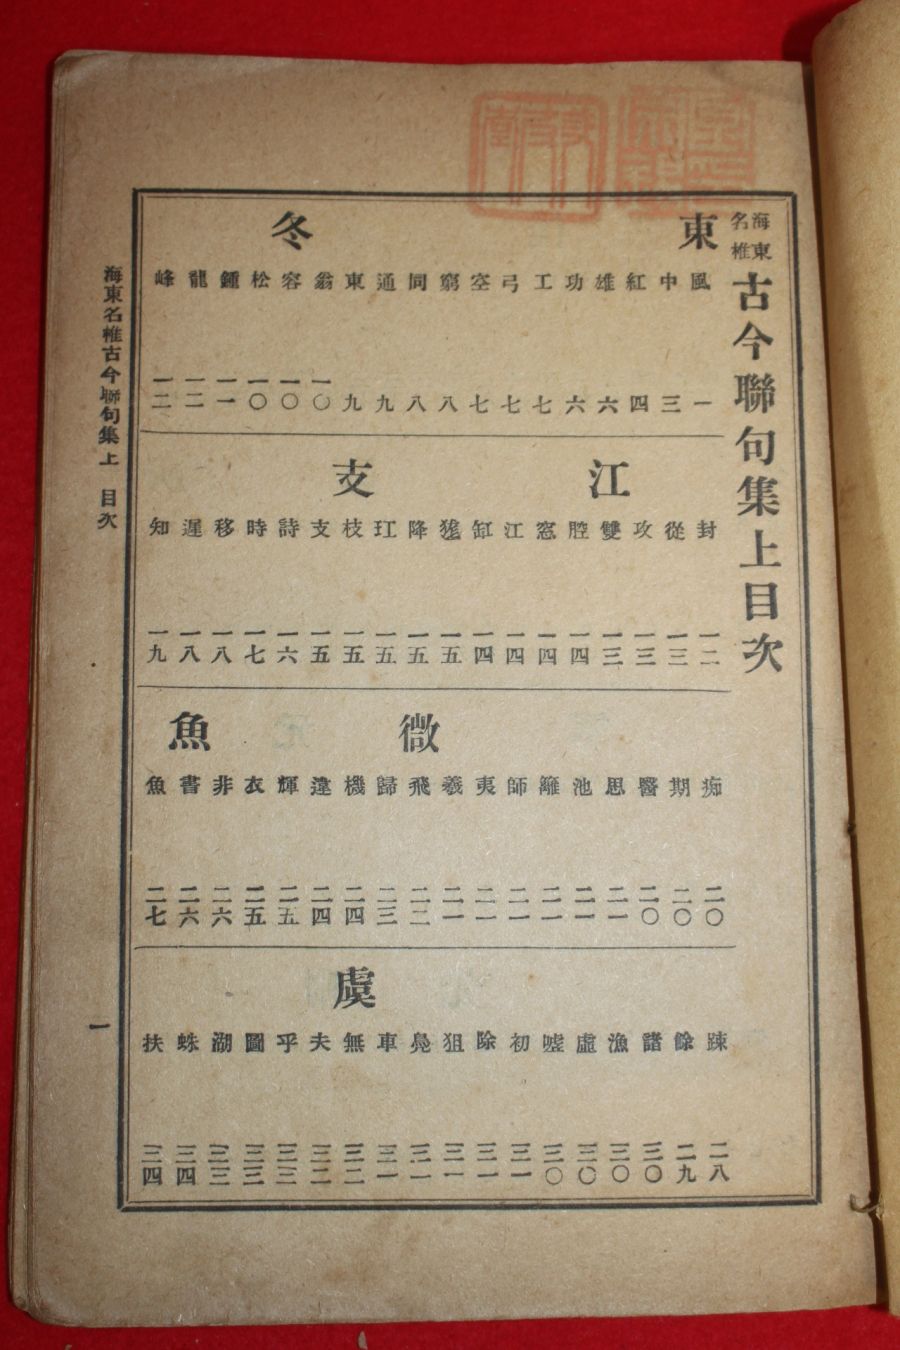 海東名椎 古今聯句集上目次
東 冬
風 中 紅 雄 功 工 弓 空 窮 同 通 東 翁 容 松 鍾 龍 峰
一 三 四 六 六 七 七 七 八 八 九 九 一〇 一〇 一〇 一一 一二 一二
江 支
封 從 攻 雙 腔 窓 江 缸 降 玒 枝 支 詩 時 移 遲 知
一二 一三 一三 一三 一四 一四 一四 一四 一五 一五 一五 一五 一五 一六 一七 一八 一八 一九
微 魚
痴 期 醫 思 池 籬 師 夷 羲 飛 歸 機 違 輝 衣 非 書 魚
二〇 二〇 二〇 二一 二一 二一 二一 二一 二一 二二 二三 二四 二四 二五 二五 二六 二六 二七
虞
踈 餘 諸 漁 虛 噓 初 除 狙 鳧 車 無 夫 乎 圖 湖 蛛 扶
二八 二九 三〇 三〇 三〇 三〇 三一 三一 三一 三一 三一 三二 三二 三三 三三 三三 三四 三四
海東名椎古今聯句集上 目次
一